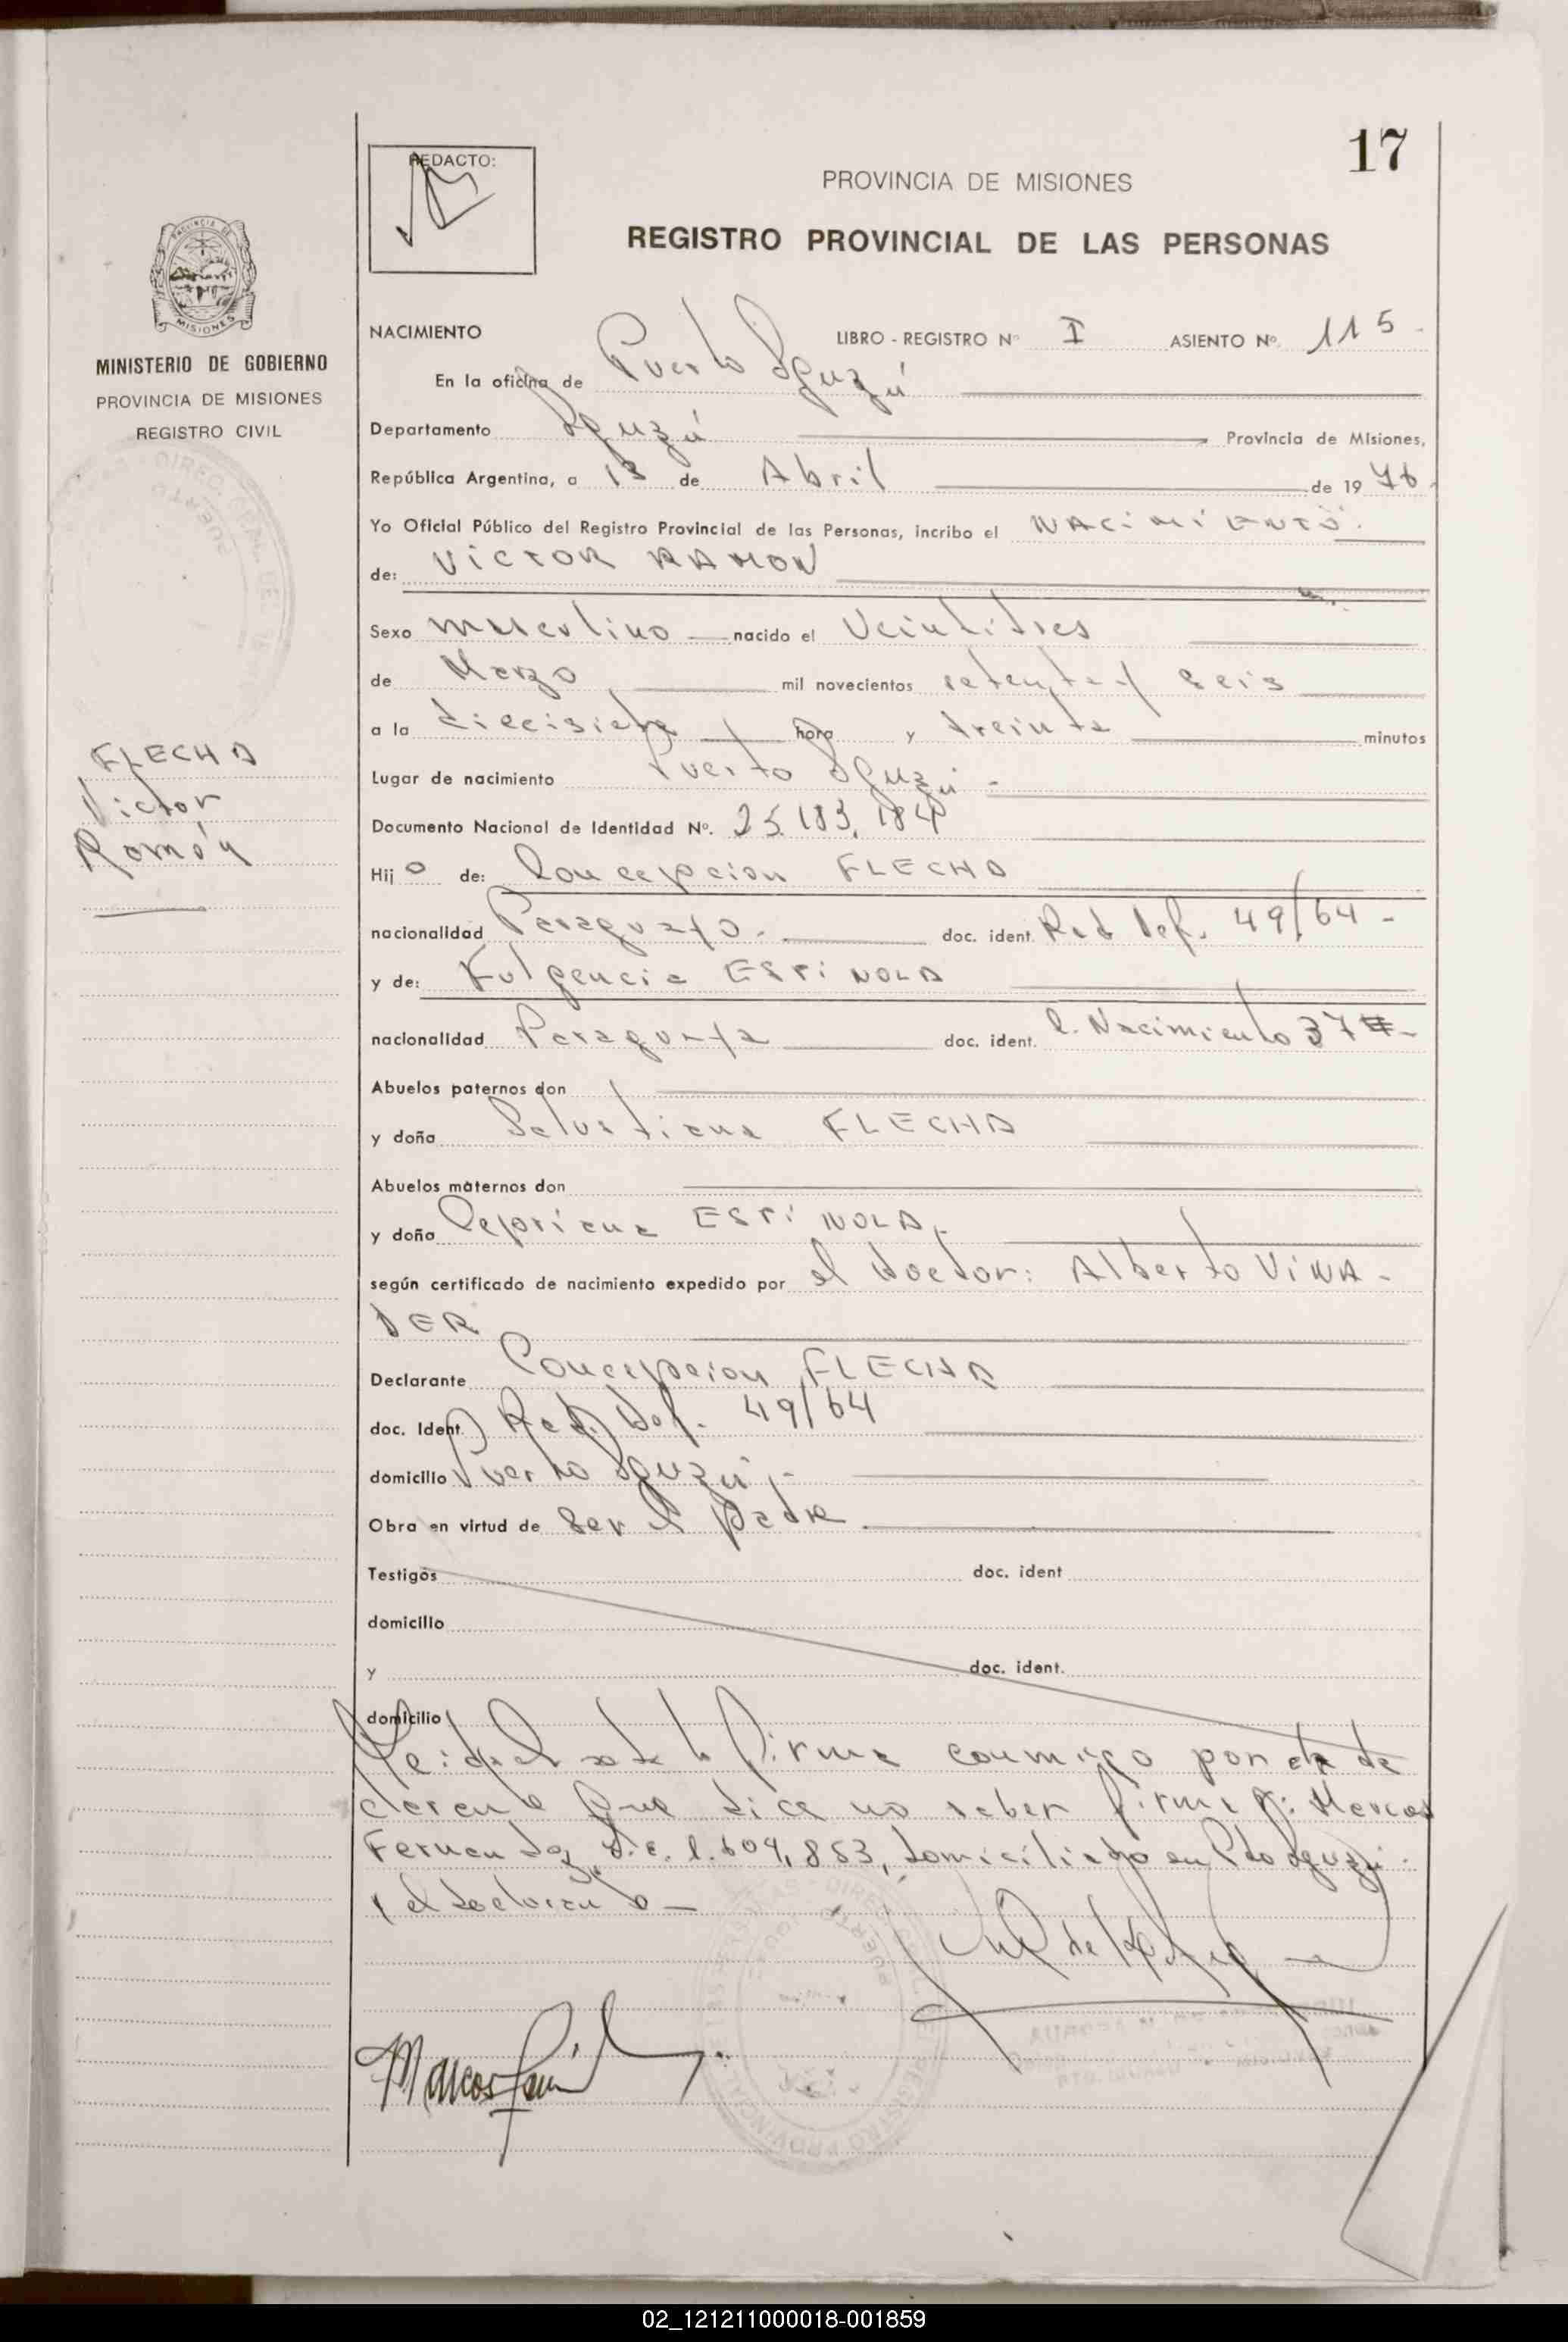 17
REDACTO:
PROVINCIA DE MISIONES
REGISTRO PROVINCIAL DE LAS PERSONAS
MISIONES
MINISTERIO DE GOBIERNO
PROVINCIA DE MISIONES
REGISTRO CIVIL
FLECHA
Victor
Ramón
NACIMIENTO LIBRO - REGISTRO Nº I ASIENTO Nº 115
En la oficina de Puerto Iguazú
Departamento Iguazú Provincia de Misiones,
República Argentina, a 13 de Abril de 1976.
Yo Oficial Público del Registro Provincial de las Personas, incribo el NACIMIENTO
de: VICTOR RAMON
Sexo masculino nacido el Veintitres
de Marzo mil novecientos setenta y seis
a la diecisiete hora y treinta minutos
Lugar de nacimiento Puerto Iguazú -
Documento Nacional de Identidad Nº. 25.183.184
Hijo de: Concepcion FLECHA
nacionalidad Paraguayo.- doc. ident. Rad. Def. 49/64 -
y de: Fulgencia ESPINOLA
nacionalidad Paraguaya doc. ident. C. Nacimiento 37
Abuelos paternos don
y doña Salustiana FLECHA
Abuelos maternos don
y doña Cepriana ESPINOLA.
según certificado de nacimiento expedido por el doctor: Alberto VINA-
DER
Declarante Concepcion FLECHA
doc. Ident. Rad. Def. 49/64
domicilio Puerto Iguazú.-
Obra en virtud de Ser el padre
Testigos doc. ident
domicilio
y doc. ident.
domicilio
Leída el acta la firma conmigo por el de
clarante que dice no saber firmar: Marcos
Fernandez, domiciliado en Pto Iguazú.
y el declarante -
Marcos
02_121211000018-001859